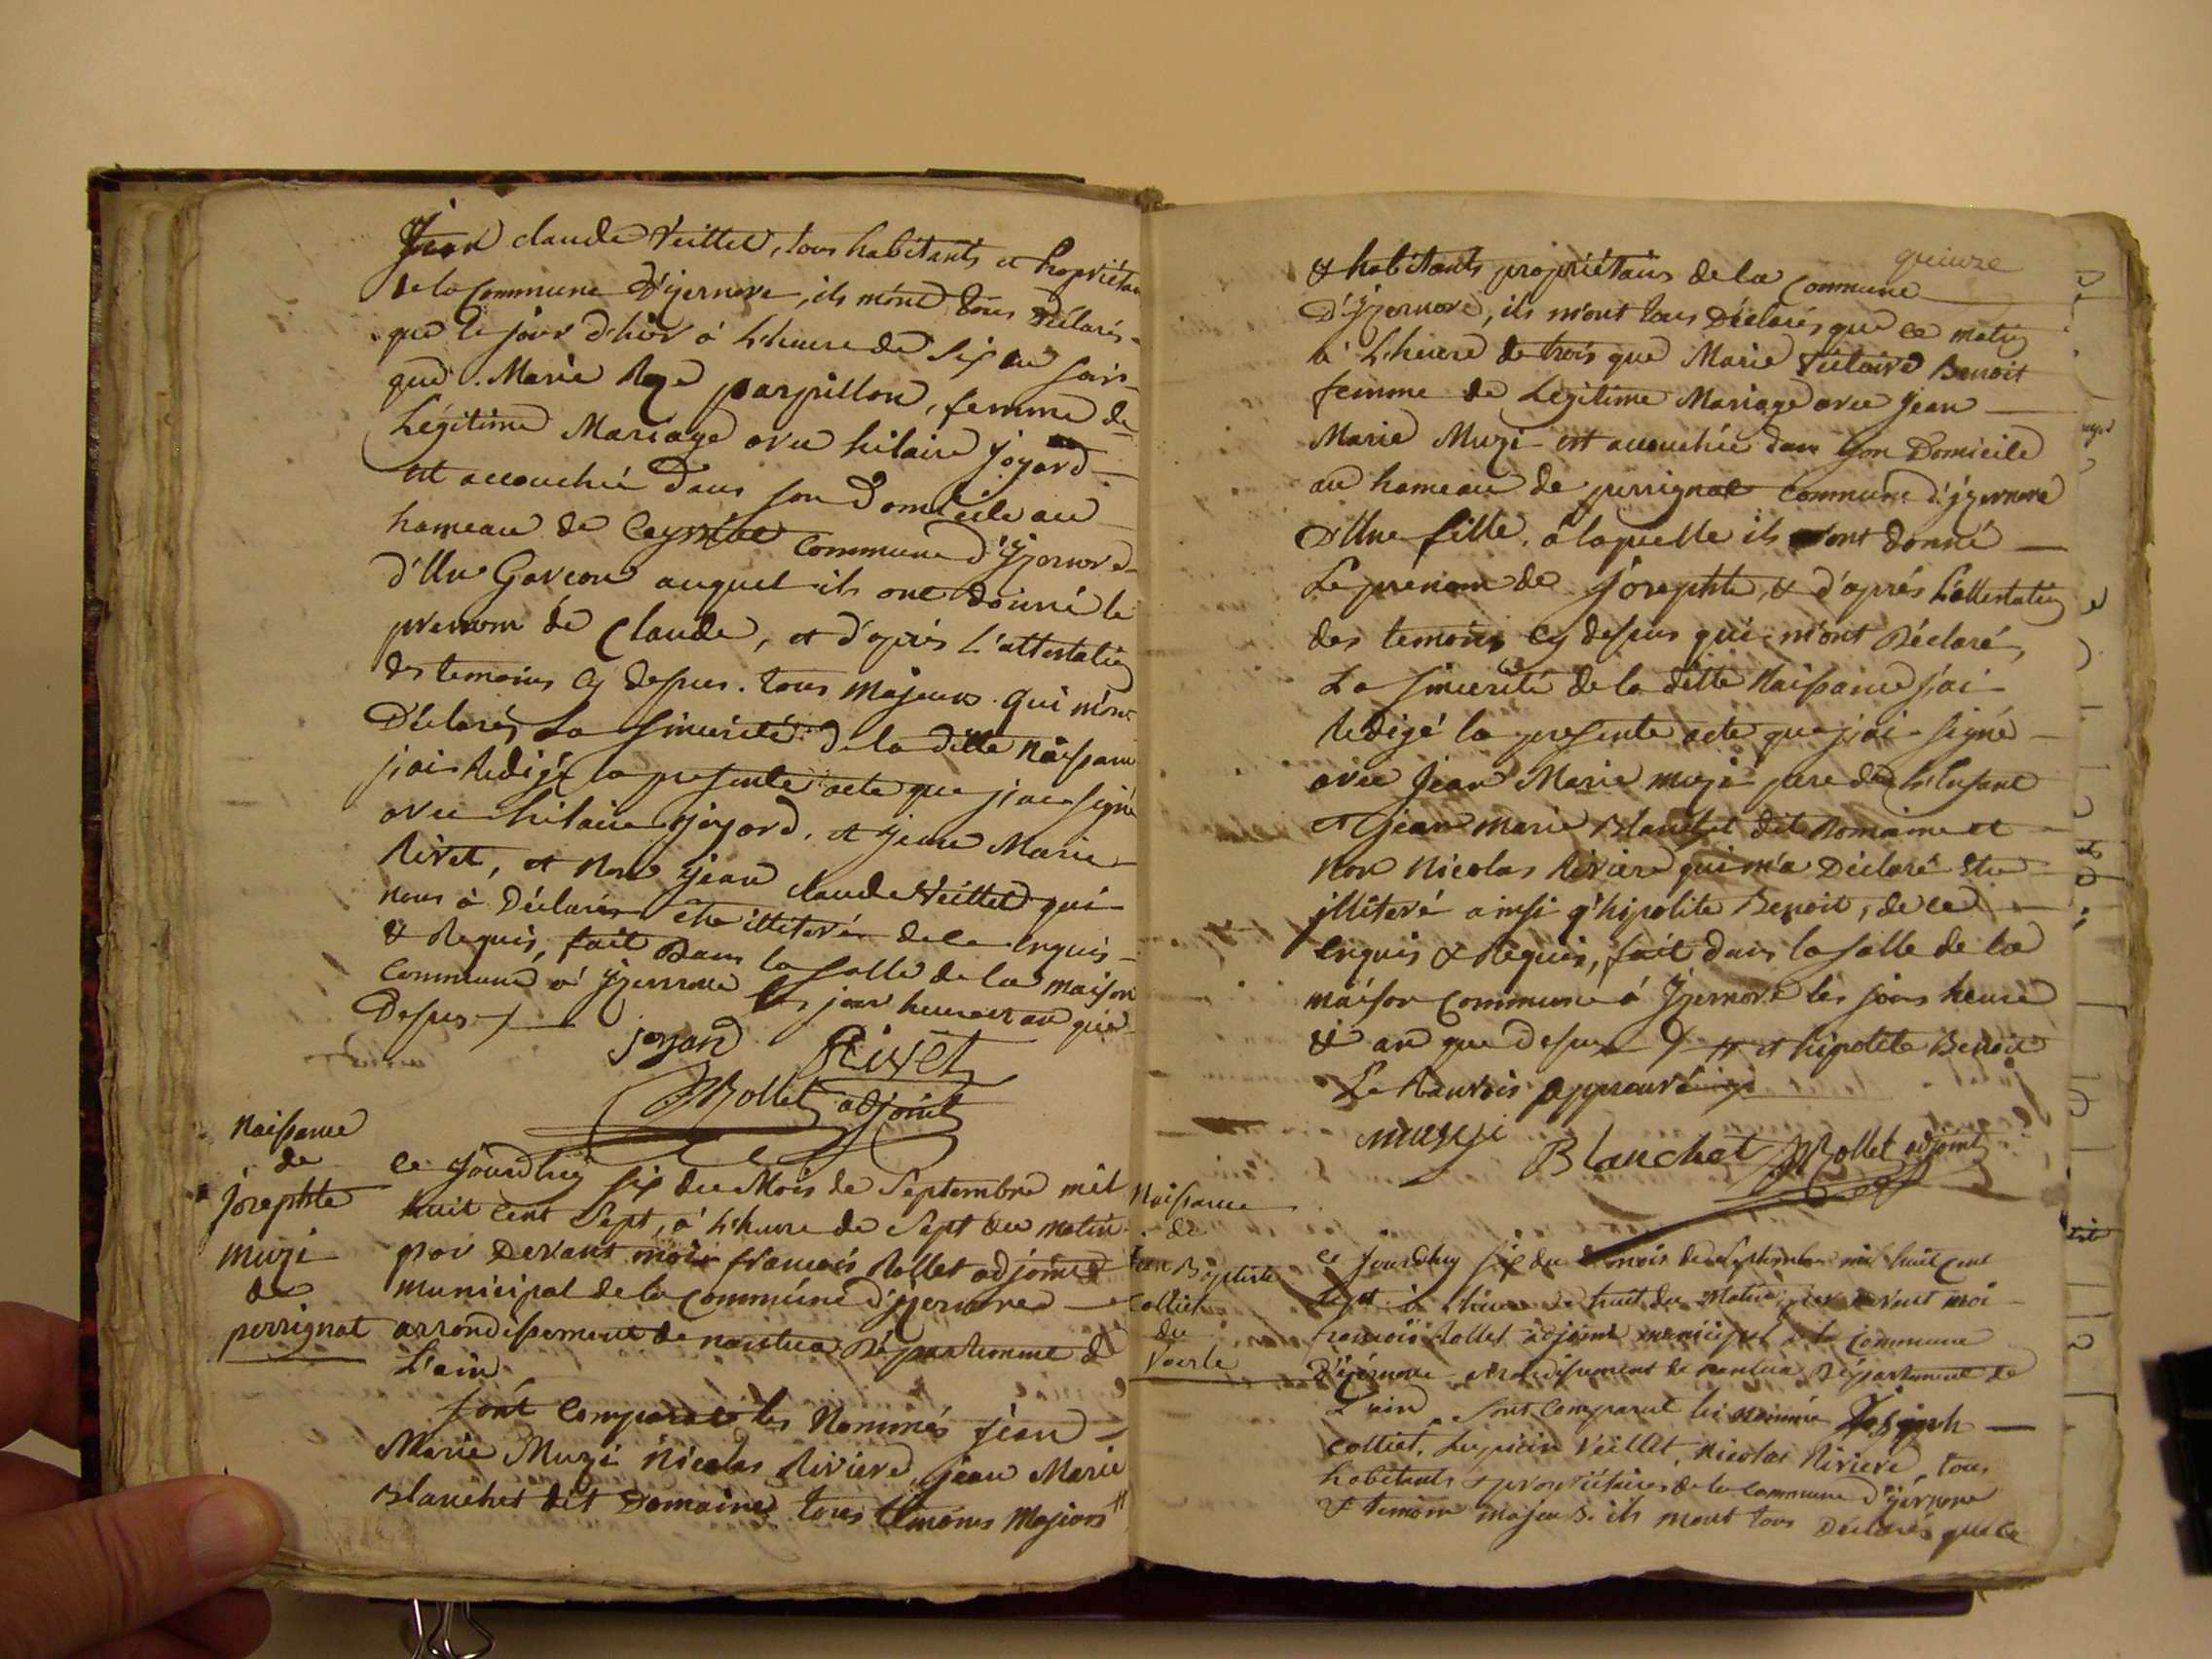 Jean claude Veillet, tous habitants et Propriétai
de la Commune D'yzernore, ils m'ont tous Déclarés
que le jour d'hier à L'heure de six du soir
que Marie Roze parpillon, femme de
Légitime Mariage avec hilaire joyard
est accouchée dans son Domicile au
hameau de Ceyssiat Commune d'Yzernore
d'Un Garcon auquel ils ont donné le
prenom de Claude, et d'après L'attestation
des temoins Cy dessus. tous Majeurs qui m'ont
Déclarés La sincerité de la ditte Naissance
j'ai Redigé la presente acte que j'ai signé
avec hilaire joyard, et jean Marie
Rivet, et Non jean claude Veillet qui
nous à Déclarés etre illiteré de ce enquis
& Requis, fait Dans la salle de la maison
Commune à Yzernore les jour heure et an que
Dessus
joyard Rivet
Rollet adjoint
Naissance
de
josephte
muzi
de
perrignat
ce jourdhuy six du Mois de Septembre mil
huit cent Sept, à L'heure de Sept du matin
par Devant moi francois Rollet adjoint
municipal de la Commune d'yzernore
arrondissement de nantua Département de
L'ain
sont comparus les Nommés jean
Marie Muzi Nicolas Riviere, jean Marie
Blanchet dit Domaine tous temoins Majeurs #
quinze
& habitants propriétaires de la Commune
D'Yzernore, ils m'ont tous Déclarés que ce matin
à L'heure de trois que Marie Victoire Benoit
femme de Légitime Mariage avec jean
Marie Muzi est accouchée dans son Domicile
au hameau de perrignat commune d'yzernore
d'Une fille, à laquelle ils ont donné
Le prenom de josephte, & d'après L'attestation
des temoins Cy dessus qui m'ont Déclaré
La sincerité de la ditte Naissance j'ai
Redigé la presente acte que j'ai signé
avec jean Marie muzi pere de L'enfant
et jean marie Blanchet dit Romaine et
Non Nicolas Riviere qui m'a Déclaré Etre
illiteré ainsi q'hipolite Benoit, de ce
Enquis & Requis, fait dans la salle de la
maison Commune à Yzernore les jours heure
& an que dessus # et hipolite Benoit
Le Ranvois approuvé
musy Blanchet Rollet adjoint
Naissance
de
jean Baptiste
Colliet
du
Voerle
ce jourdhuy six du mois de Septembre mil huit Cent
Sept à L'heure de huit du Matin, par devant moi
francois Rollet adjoint municipal de la Commune
D'yzernore arondissement de nantua Département de
L'ain, sont comparut les nommés Joseph
colliet. Lupicin Veillet, Nicolas Riviere, tous
habitants & propriétaires de la Commune d'yzernore
& temoins majeurs. ils mont tous Déclarés que ce